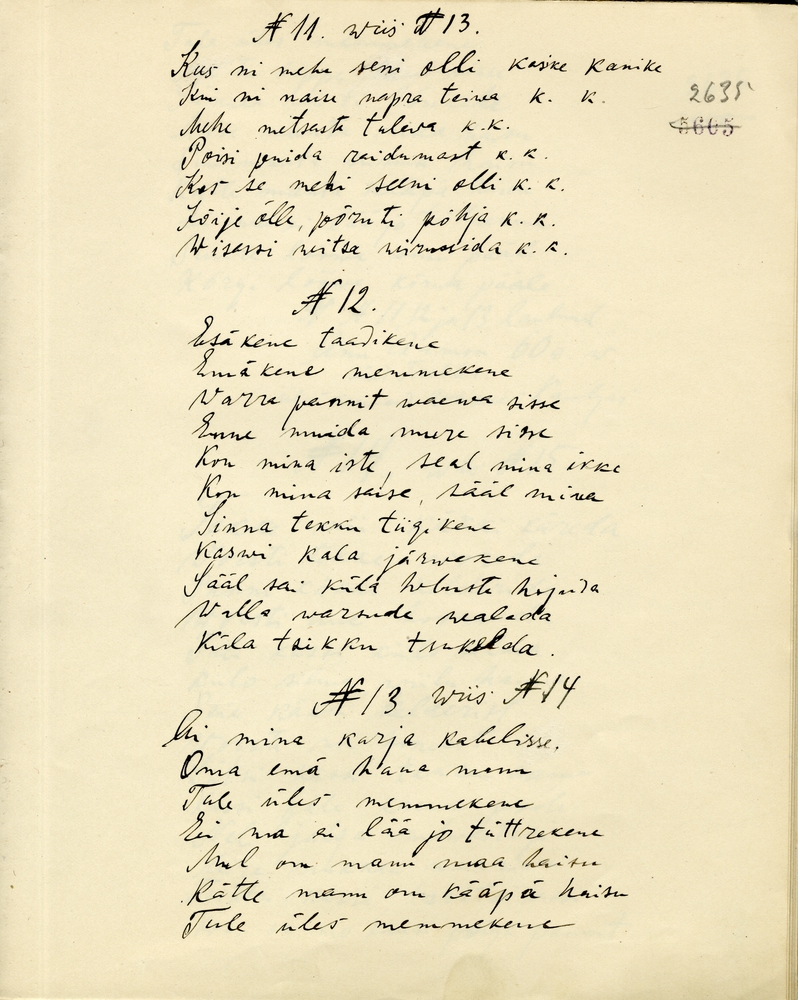 № 11. wiis № 13.
Kus ni mehe seni olli kaske kanike
Kui ni naise napra teiwa k. k.
2635
5605
Mehe mitsasta tulewa k.k.
Poisi puida raidumast k. k.
Kos se mehi seeni olli k. k.
Jõije õlle, põruti põhja k. k.
Wisassi witsa k. k.
№ 12.
Esäkene taadikene
Emäkene memmekene
Warra pannit waewa sisse
Enne muida mure sisse
Kon mina iste, seal mina ikke
Kon mina saise, sääl mina
Sinna tekku tiigikene
Kaswi kala järwekene
Sääl sai küla hobusta hojuda
Walla warsude walada
Küla tsikku tsukelda.
№ 13. wiis № 14
Ai mina karja kabelisse.
Oma emä haua mann
Tule üles memmekene
Ei ma ei lää jo tüttrekene
Mul om mann maa haisu
Kätte mann om kääpä haisu
Tule üles memmekene